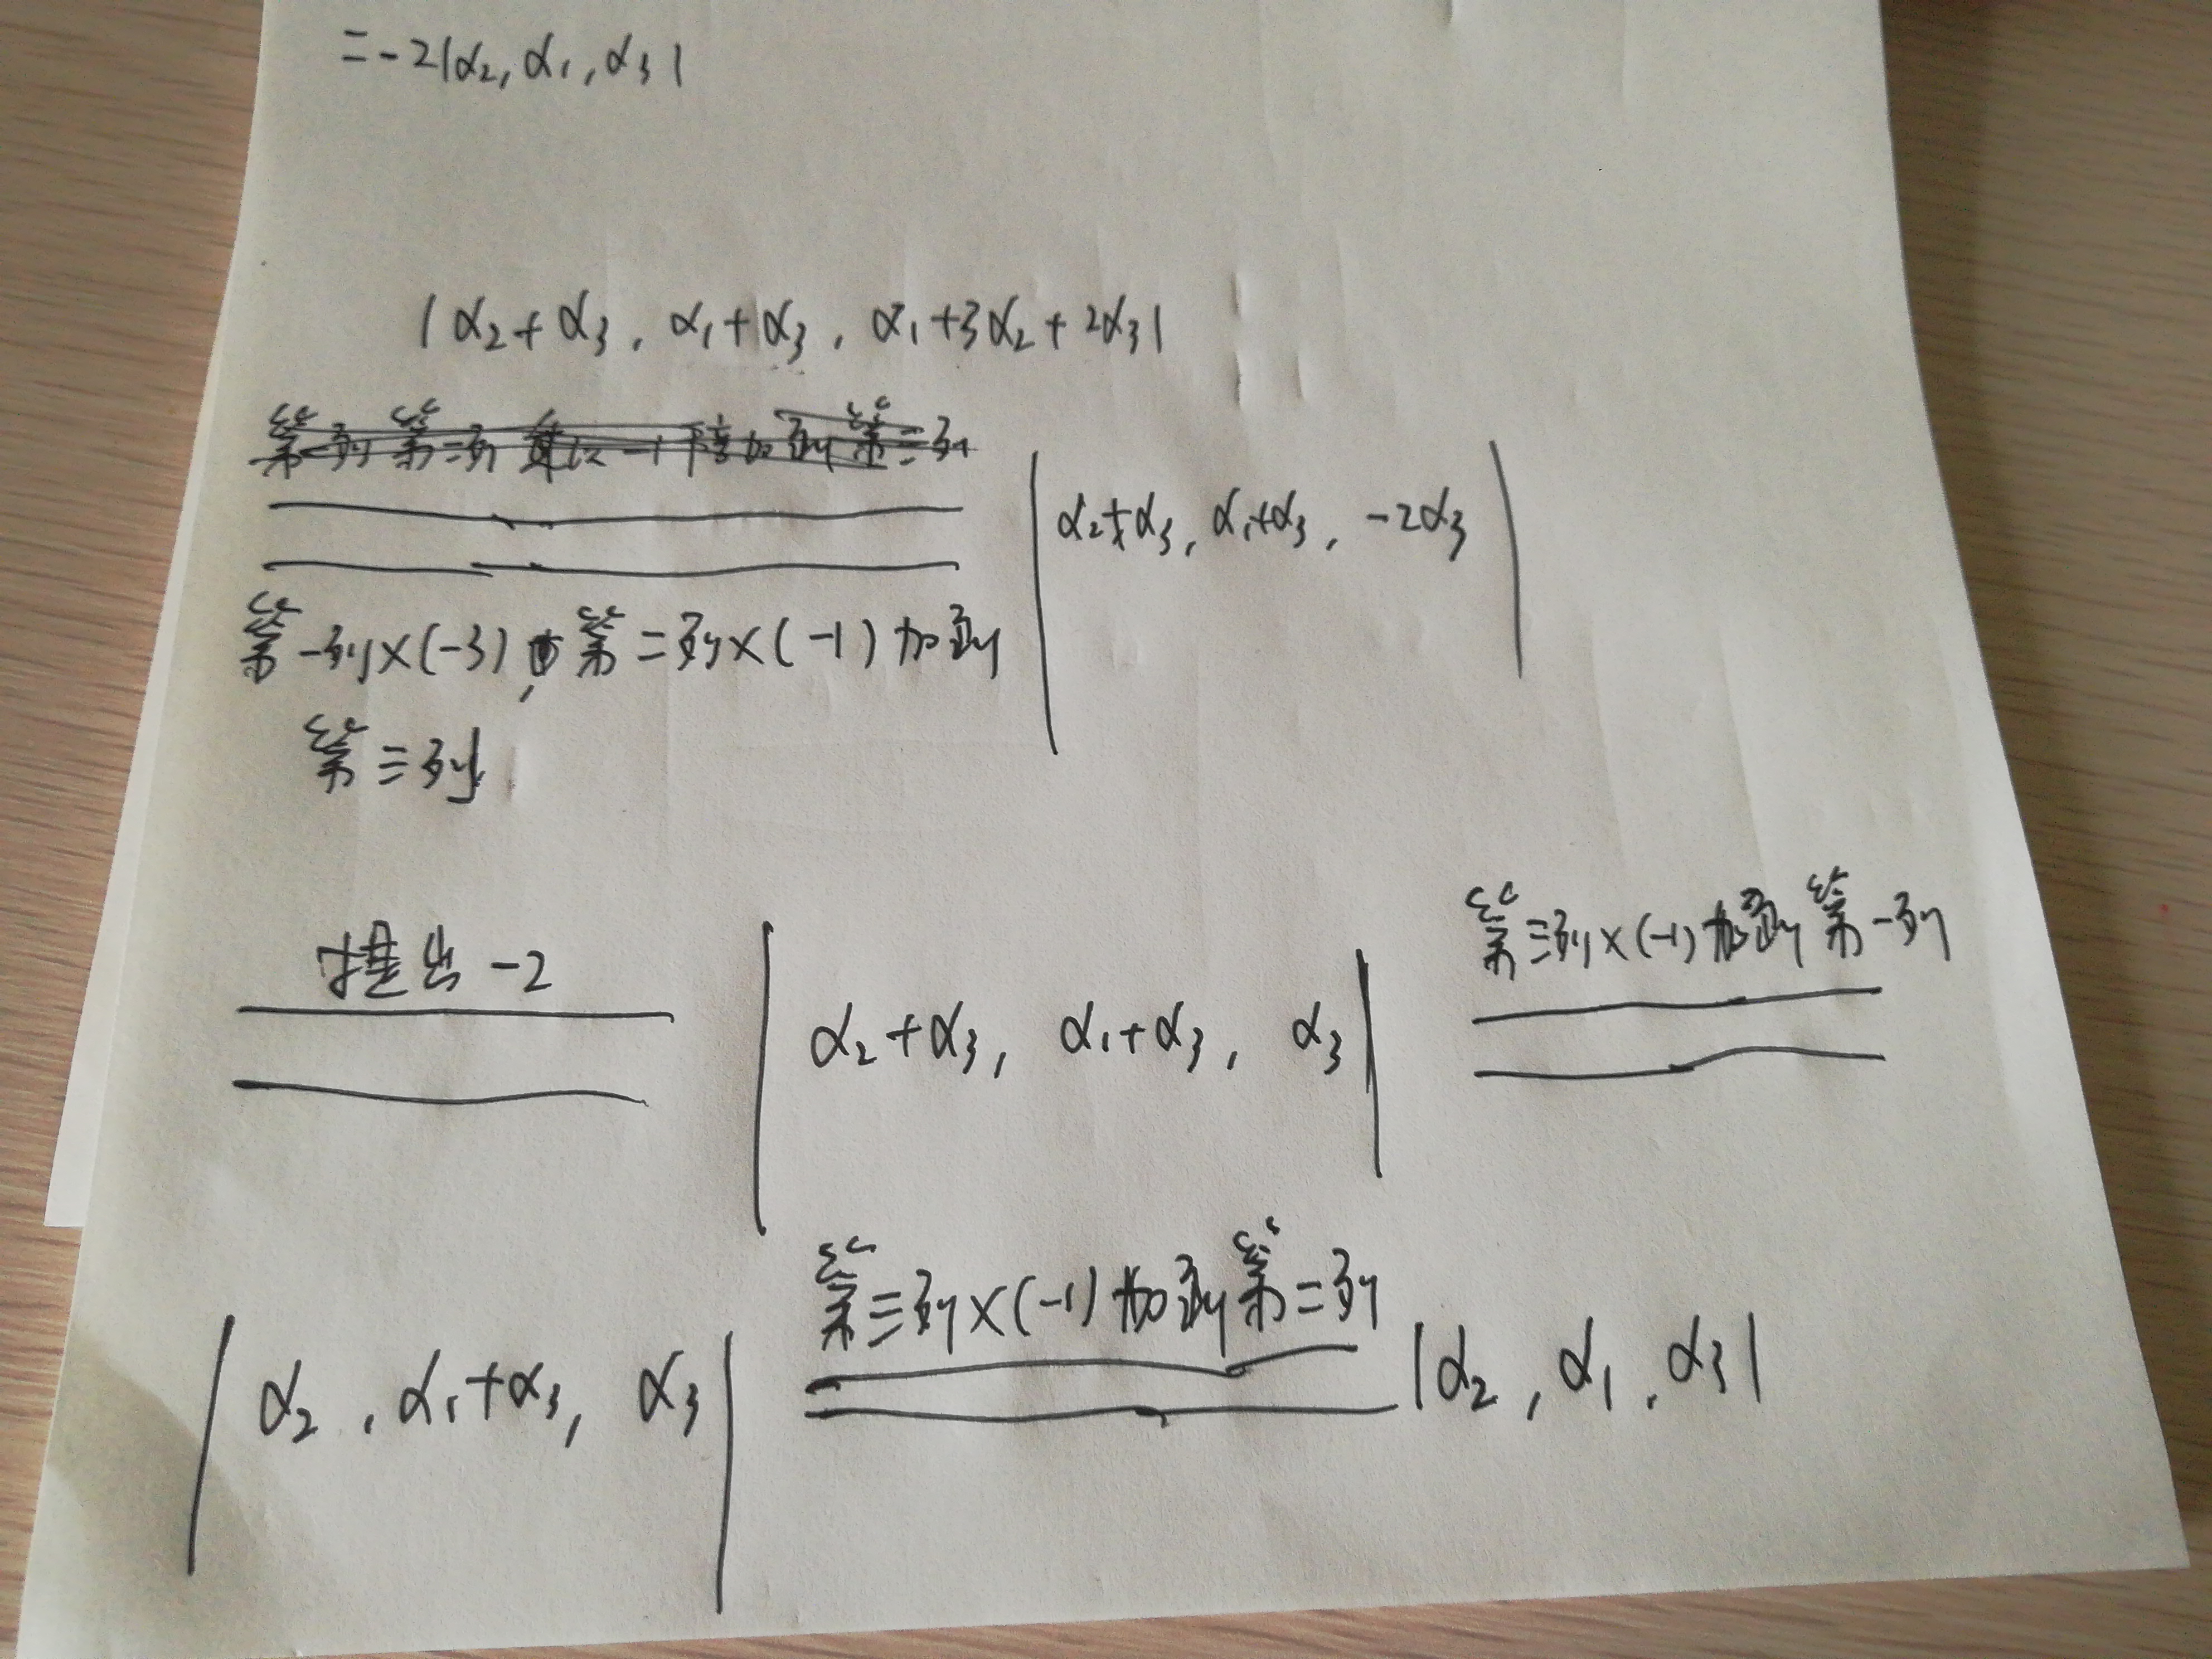 =-2|α₂, α₁, α₃|
|α₂+α₃, α₁+α₃, α₁+3α₂+2α₃|
第一列 第二列 乘以 -1 倍加到第三列
|α₂+α₃, α₁+α₃, -2α₃|
第一列×(-3), 第二列×(-1)加到
第三列
提出 -2
|α₂+α₃, α₁+α₃, α₃|
第三列×(-1)加到第一列
|α₂, α₁+α₃, α₃|
第三列×(-1)加到第二列
|α₂, α₁, α₃|